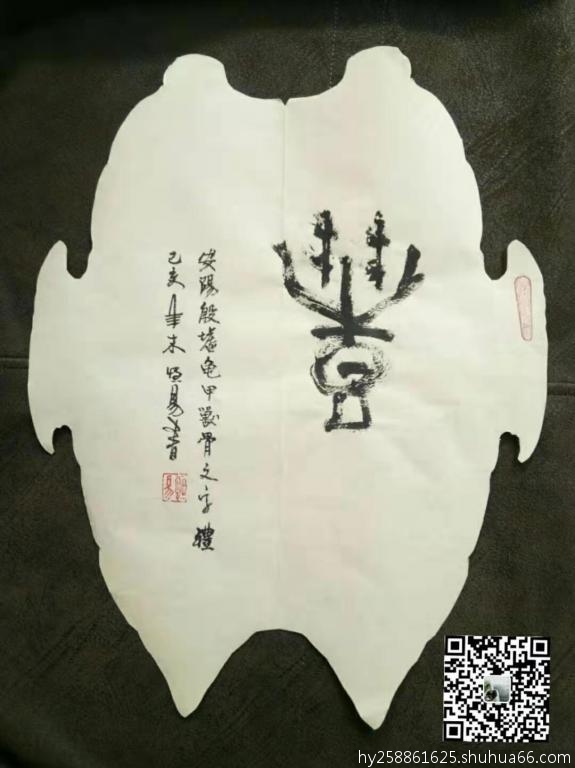 安陽殷墟龜甲獸骨文字 禮
己亥年木明易書
hy258861625.shuhua66.com